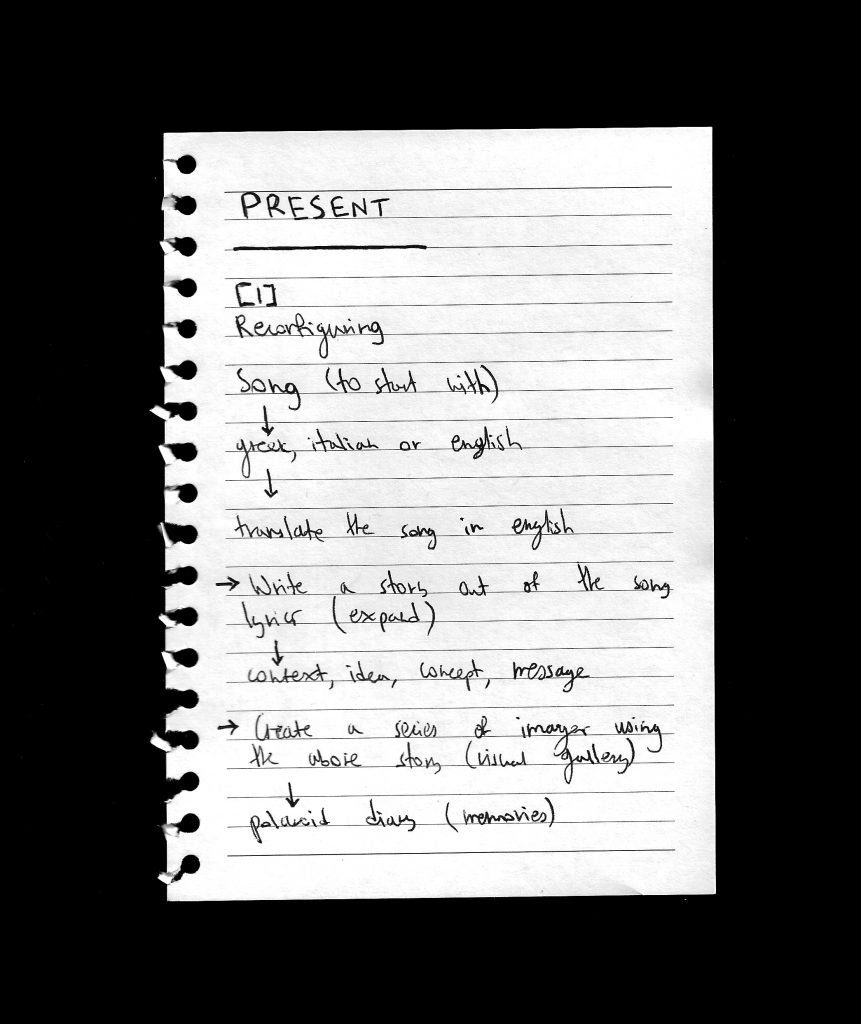 PRESENT
[1]
Reconfiguring
Song (to start with)
↓
greek, italian or english
↓
translate the song in english
→ Write a story out of the song
lyrics (expand)
↓
context, idea, concept, message
→ Create a series of images using
the above story (visual gallery)
↓
polaroid diary (memories)